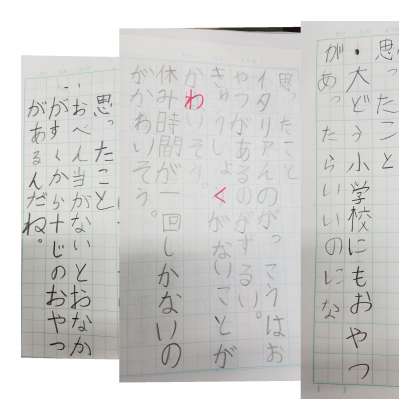 思ったこと
・大どう小学校にもおやつ
があったらいいのにな
思ったこと
イタリアんのがっこうはお
やつがあるのがずるい。
きゅうしょくがないことが
かわいそう。
休み時間が一回しかないの
がかわいそう。
思ったこと
・おべん当がないとおなか
がすくから十じのおやつ
があるんだね。